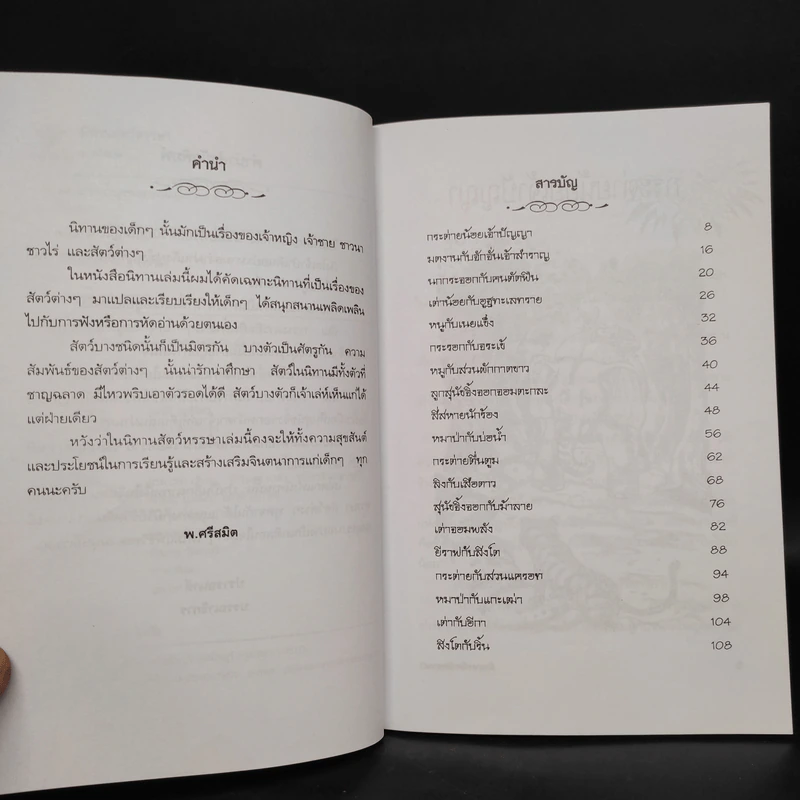 คำนำ
นิทานของเด็กๆ นั้นมักเป็นเรื่องของเจ้าหญิง เจ้าชาย ชาวนา
ชาวไร่ และสัตว์ต่างๆ
ในหนังสือนิทานเล่มนี้ผมได้คัดเฉพาะนิทานที่เป็นเรื่องของ
สัตว์ต่างๆ มาแปลและเรียบเรียงให้เด็กๆ ได้สนุกสนานเพลิดเพลิน
ไปกับการฟังหรือการหัดอ่านด้วยตนเอง
สัตว์บางชนิดนั้นก็เป็นมิตรกัน บางตัวเป็นศัตรูกัน ความ
สัมพันธ์ของสัตว์ต่างๆ นั้นน่ารักน่าศึกษา สัตว์ในนิทานมีทั้งตัวที่
ชาญฉลาด มีไหวพริบเอาตัวรอดได้ดี สัตว์บางตัวก็เจ้าเล่ห์เห็นแก่ได้
แต่ฝ่ายเดียว
หวังว่าในนิทานสัตว์หรรษาเล่มนี้คงจะให้ทั้งความสุขสันต์
และประโยชน์ในการเรียนรู้และสร้างเสริมจินตนาการแก่เด็กๆ ทุก
คนนะครับ
พ.ศรีสมิต
สารบัญ
กระต่ายน้อยเจ้าปัญญา 8
มดงานกับจักจั่นเจ้าสำราญ 16
นกกระจอกกับคนตัดฟืน 20
เต่าน้อยกับอูฐทะเลทราย 26
หนูกับเนยแข็ง 32
กระรอกกับจระเข้ 36
หมูกับสวนผักกาดขาว 40
ลูกสุนัขจิ้งจอกจอมตะกละ 44
สี่สหายนักร้อง 48
หมาป่ากับบ่อน้ำ 56
กระต่ายตื่นตูม 62
ลิงกับเสือดาว 68
สุนัขจิ้งจอกกับม้าลาย 76
เต่าจอมพลัง 82
ยีราฟกับสิงโต 88
กระต่ายกับสวนแครอท 94
หมาป่ากับแกะเฒ่า 98
เต่ากับอีกา 104
สิงโตกับริ้น 108